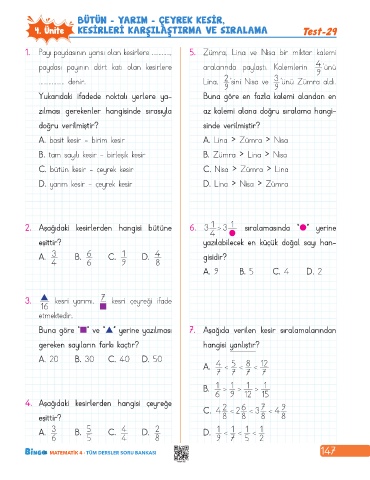 4. Ünite
BÜTÜN - YARIM - ÇEYREK KESİR,
KESİRLERİ KARŞILAŞTIRMA VE SIRALAMA
Test-29
1. Payı paydasının yarısı olan kesirlere ..........,
paydası payının dört katı olan kesirlere
.............. denir.
Yukarıdaki ifadede noktalı yerlere ya-
zılması gerekenler hangisinde sırasıyla
doğru verilmiştir?
A. basit kesir - birim kesir
B. tam sayılı kesir - birleşik kesir
C. bütün kesir - çeyrek kesir
D. yarım kesir - çeyrek kesir
2. Aşağıdaki kesirlerden hangisi bütüne
eşittir?
A. 3/4 B. 6/6 C. 1/9 D. 4/8
3. ▲/16 kesri yarımı, 7/■ kesri çeyreği ifade
etmektedir.
Buna göre "■" ve "▲" yerine yazılması
gereken sayıların farkı kaçtır?
A. 20 B. 30 C. 40 D. 50
4. Aşağıdaki kesirlerden hangisi çeyreğe
eşittir?
A. 3/6 B. 5/5 C. 4/4 D. 2/8
5. Zümra, Lina ve Nisa bir miktar kalemi
aralarında paylaştı. Kalemlerin 4/9 ünü
Lina, 2/9 sini Nisa ve 3/9 'ünü Zümra aldı.
Buna göre en fazla kalemi alandan en
az kalemi alana doğru sıralama hangi-
sinde verilmiştir?
A. Lina > Zümra > Nisa
B. Zümra > Lina > Nisa
C. Nisa > Zümra > Lina
D. Lina > Nisa > Zümra
6. 3 1/4 > 3 1/● sıralamasında "●" yerine
yazılabilecek en küçük doğal sayı han-
gisidir?
A. 9 B. 5 C. 4 D. 2
7. Aşağıda verilen kesir sıralamalarından
hangisi yanlıştır?
A. 4/7 < 5/7 < 8/7 < 12/7
B. 1/6 > 1/9 > 1/12 > 1/15
C. 4 2/8 < 2 6/8 < 3 7/8 < 4 9/8
D. 1/9 < 1/7 < 1/5 < 1/2
BİNGO MATEMATİK 4 · TÜM DERSLER SORU BANKASI
147